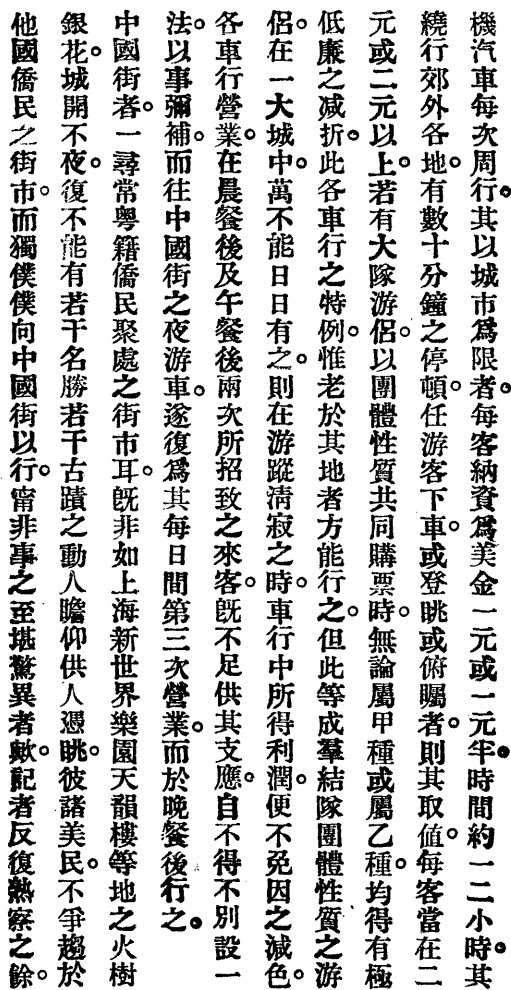 機汽車每次周行。其以城市爲限者。每客納資爲美金一元或一元半。時間約一二小時。其
繞行郊外各地。有數十分鐘之停頓。任游客下車。或登眺或俯矚者。則其取値。每客當在二
元或二元以上。若有大隊游侶。以團體性質共同購票時。無論屬甲種或屬乙種。均得有極
低廉之減折。此各車行之特例。惟老於其地者方能行之。但此等成羣結隊團體性質之游
侶。在一大城中。萬不能日日有之。則在游蹤淸寂之時。車行中所得利潤。便不免因之減色。
各車行營業。在晨餐後及午餐後兩次所招致之來客。旣不足供其支應。自不得不別設一
法。以事彌補。而往中國街之夜游車。遂復爲其每日間第三次營業。而於晚餐後行之。
中國街者。一尋常粤籍僑民聚處之街市耳。旣非如上海新世界樂園天韻樓等地之火樹
銀花。城開不夜。復不能有若干名勝若干古蹟之動人瞻仰供人憑眺。彼諸美民。不爭趨於
他國僑民之街市。而獨僕僕向中國街以行。甯非事之至堪驚異者歟。記者反復熟察之餘。